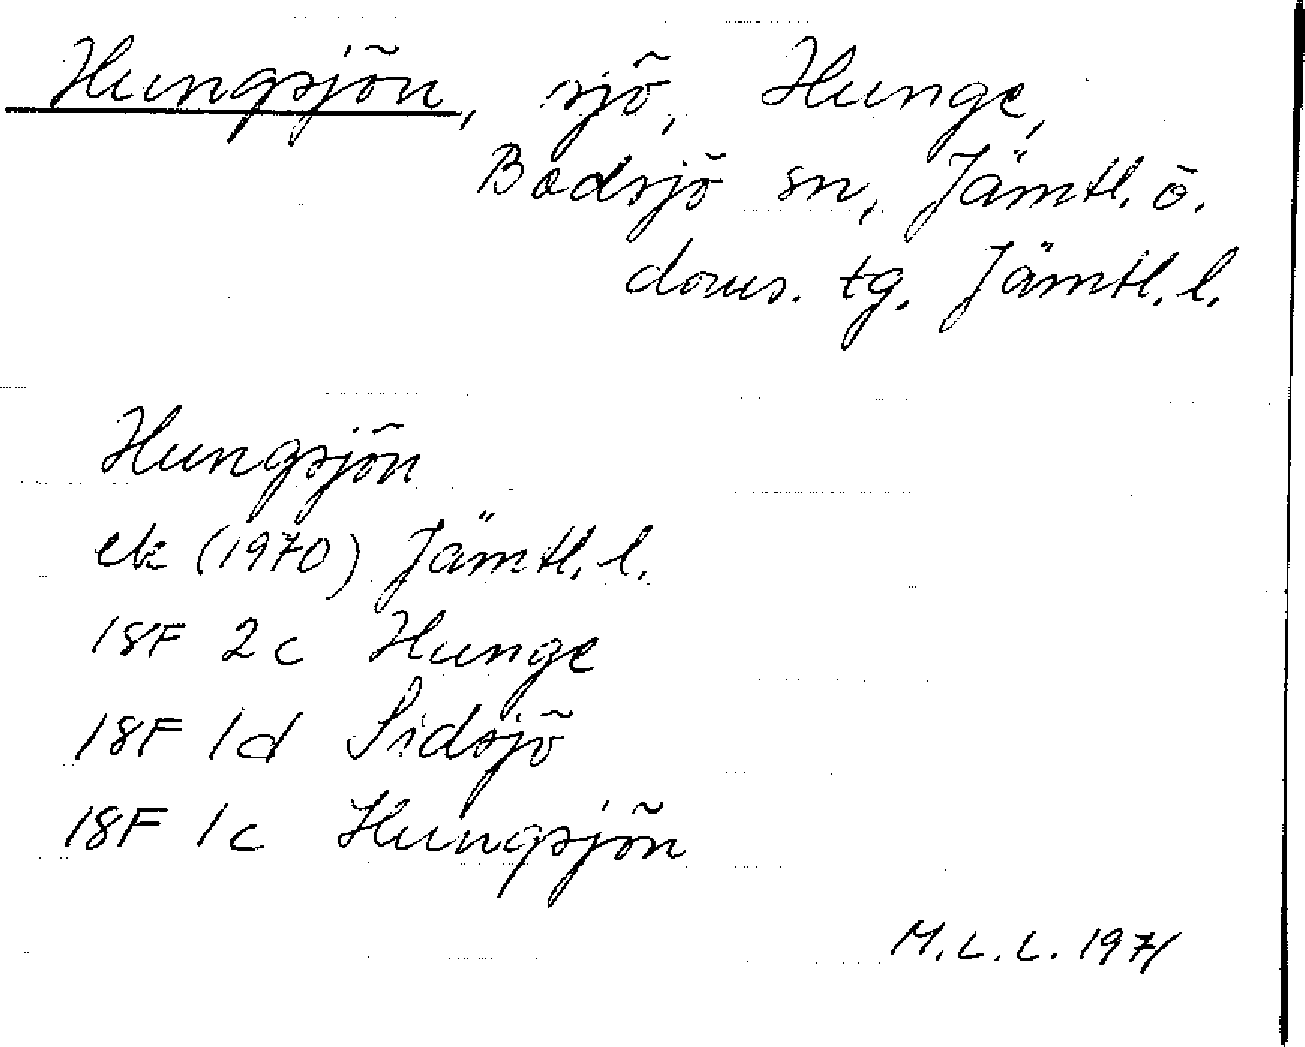 Hungsjön, sjö, Hunge,
Bodsjö sn, Jämtl. ö.
doms. tg. Jämtl. l.
Hungsjön
ek (1970) Jämtl. l.
18F 2c Hunge
18F 1d Sidsjö
18F 1c Hungsjön
M.L.L. 1971